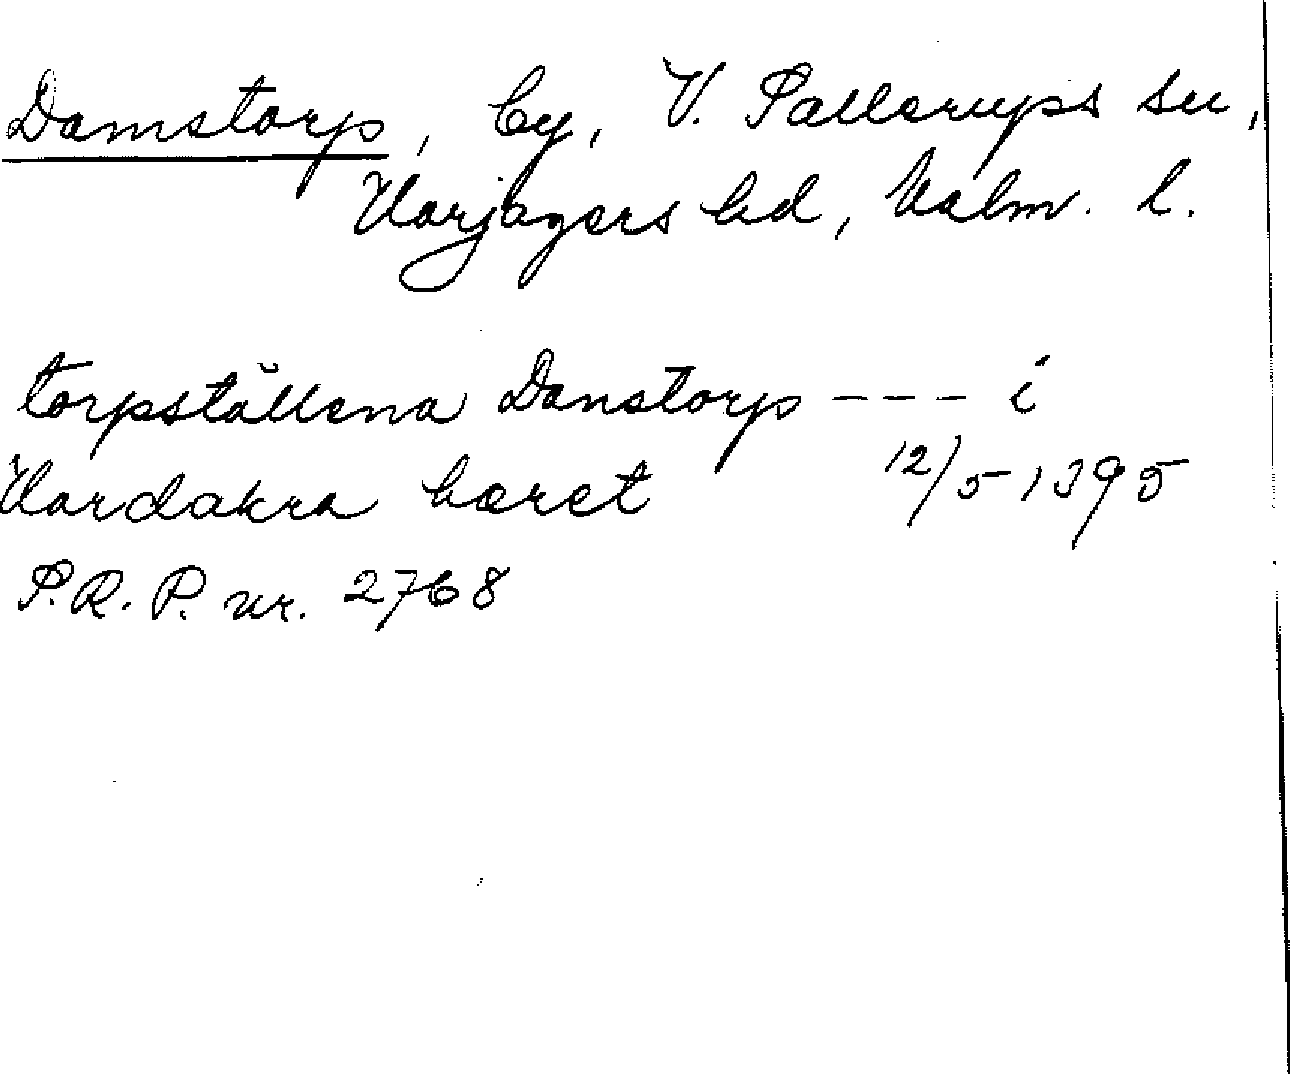 Damstorp, by, V. Sallerups sn,
Harjagers hd, Malm. l.
torpställena Danstorp - - - i
Hardakra hæret 12/5 1395
S.R.P. nr. 2768